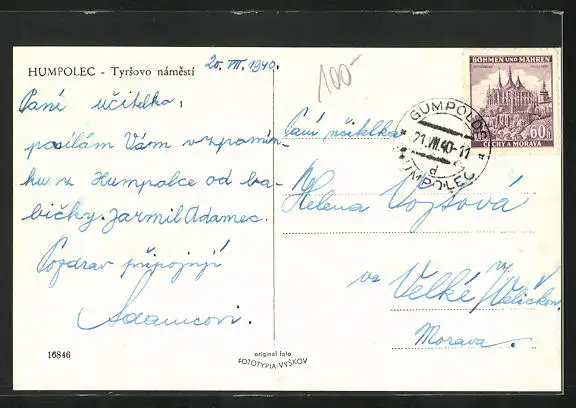 HUMPOLEC - Tyršovo náměstí
20. VII. 1940.
100-
Paní učitelka,
posílám Vám vzpomín-
ku z Humpolce od ba-
bičky. Jarmil Adamec.
Pozdrav připojují
Adamcovi.
16846
original foto
FOTOTYPIA-VYŠKOV
BÖHMEN UND MÄHREN
60h
ČECHY A MORAVA
GUMPOLDS
21.VII.40-11
HUMPOLEC
Paní učitelka
Helena Vojtová
ve Velké
Morava.